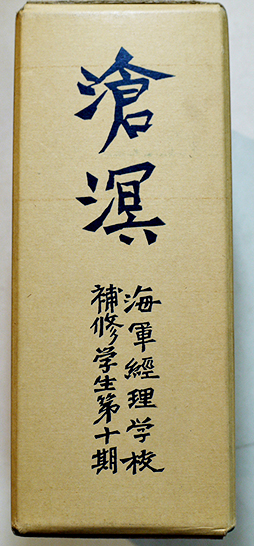 滄溟
海軍經理学校
補修学生第十期